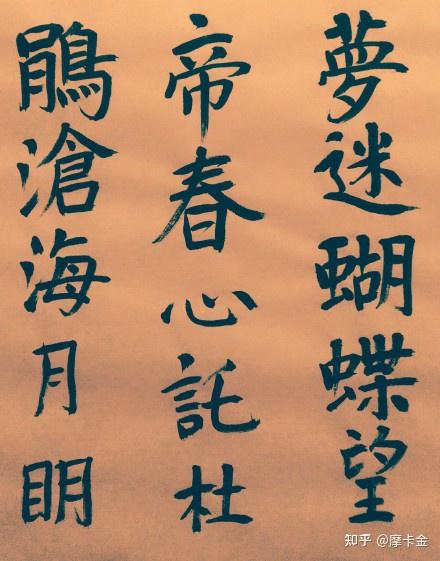 夢迷蝴蝶望
帝春心託杜
鵑滄海月明
知乎 @摩卡金